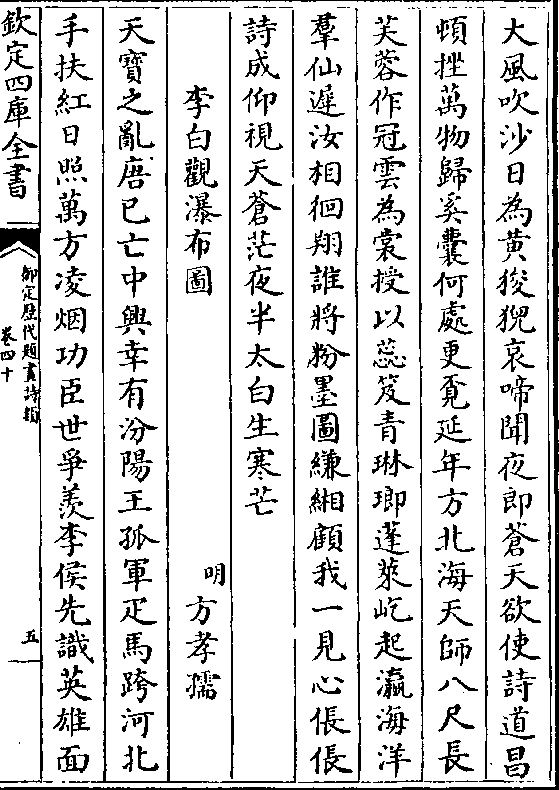 大風吹沙日為黄狻猊哀啼聞夜即蒼天欲使詩道昌
頓挫萬物歸奚囊何處更覔延年方北海天師八尺長
芙蓉作冠雲為裳授以蕊笈青琳瑯蓬萊屹起瀛海洋
羣仙遲汝相徊翔誰將粉墨圖縑緗顧我一見心倀倀
詩成仰視天蒼茫夜半太白生寒芒
李白觀瀑布圖
明 方孝孺
天寳之亂唐已亡中興幸有汾陽王孤軍疋馬跨河北
手扶紅日照萬方凌烟功臣世爭羨李侯先識英雄面
欽定四庫全書
御定歴代題畫詩類
卷四十
五